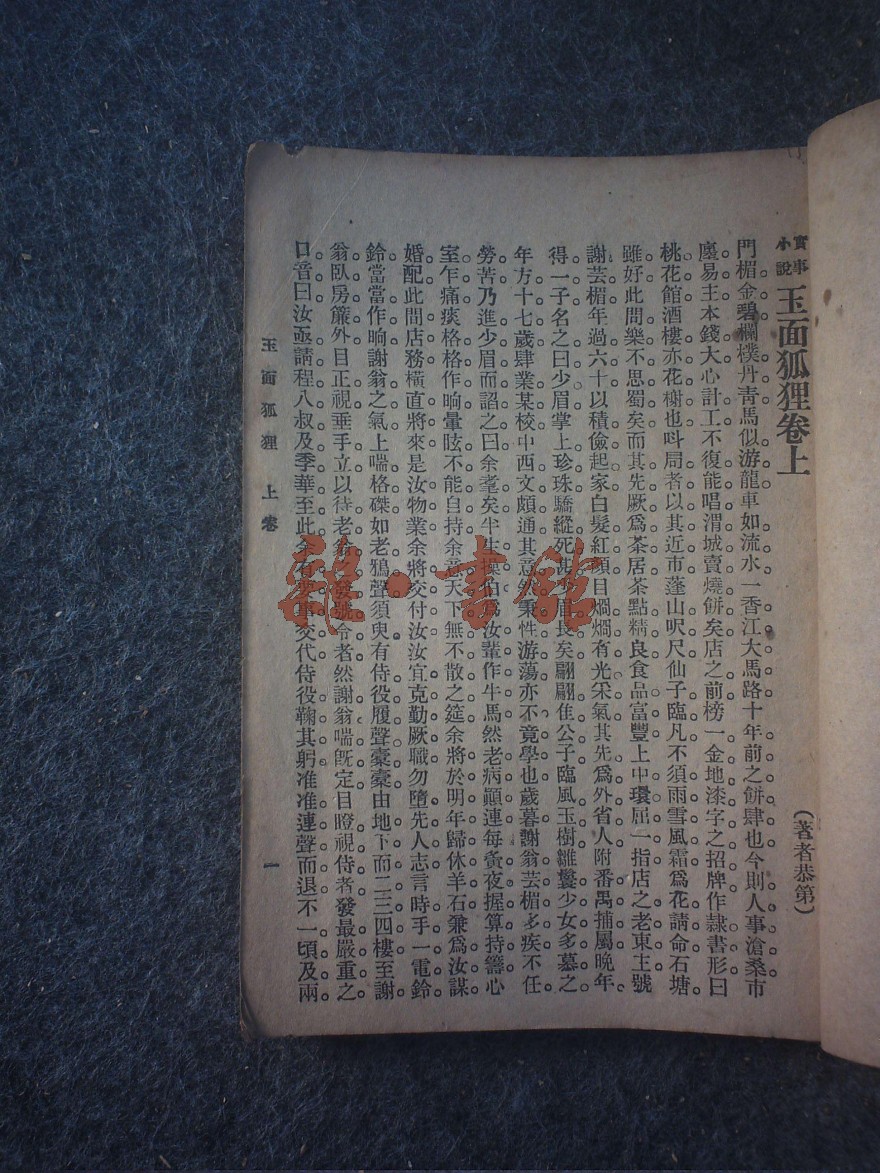 實事小說 玉面狐狸卷上
（著者恭第）
門楣金碧。欄櫈丹靑。馬似游龍。車如流水。一香江大馬路十年前之餅肆也。今則人事滄桑。市
廛易主。本錢大。心計工。不復能唱渭城賣燒餅矣。店之前榜一金地漆字之招牌。作隷書形。曰
桃花館酒樓。亦花榭也。呌局者以其近市。蓬山咫尺。仙子臨凡。不須雨雪風霜。爲花請命。石塘
雖好。此間樂不思蜀矣。而其先厥爲茶居。茶點精良。食品富豐。上中環屈一指。店之老東主號
謝芸楣。年過六十。以積儉起家。白髮紅顏。目烱烱有光采氣。其先爲外省人。附番禺捕屬。晚年
得一子。名之曰少眉。掌上珍珠。驕縱死甚。少眉長矣。翩翩隹公子。臨風玉樹。雛鬟少女多慕之。
年方十七歲。肆業某校。中西文頗通其意。然秉性游蕩。亦不竟學也。歲暮。謝翁芸楣多疾。不任
勞苦。乃進少眉而詔之曰。余耄矣。半生操伯。爲汝輩作牛馬。然老病顚連。每夤夜握算持籌。心
室乍痛。痰格格作响。暈眩不能自持。余意天下無不散之筵。余將於明年歸休羊石。兼爲汝謀
婚配。此間店務。橫直將來是汝物業。余將交付汝。汝宜克勤厥職。勿墮先人志。言時手一電鈴。
鈴當當作响。謝翁之氣上喘。格磔如老鴉聲。須臾有侍役履聲橐橐。由地下而二三四樓。至謝
翁臥房簾外。目正視垂手立。以待老翁之發號令者然。謝翁喘旣定。目瞪視侍者。發最嚴重之
口音曰。汝亟請程八叔及季華至此。余有要事交代。侍役鞠其躬。准准連聲而退。不一頃及兩
玉面狐狸 上卷
一
雜·書館